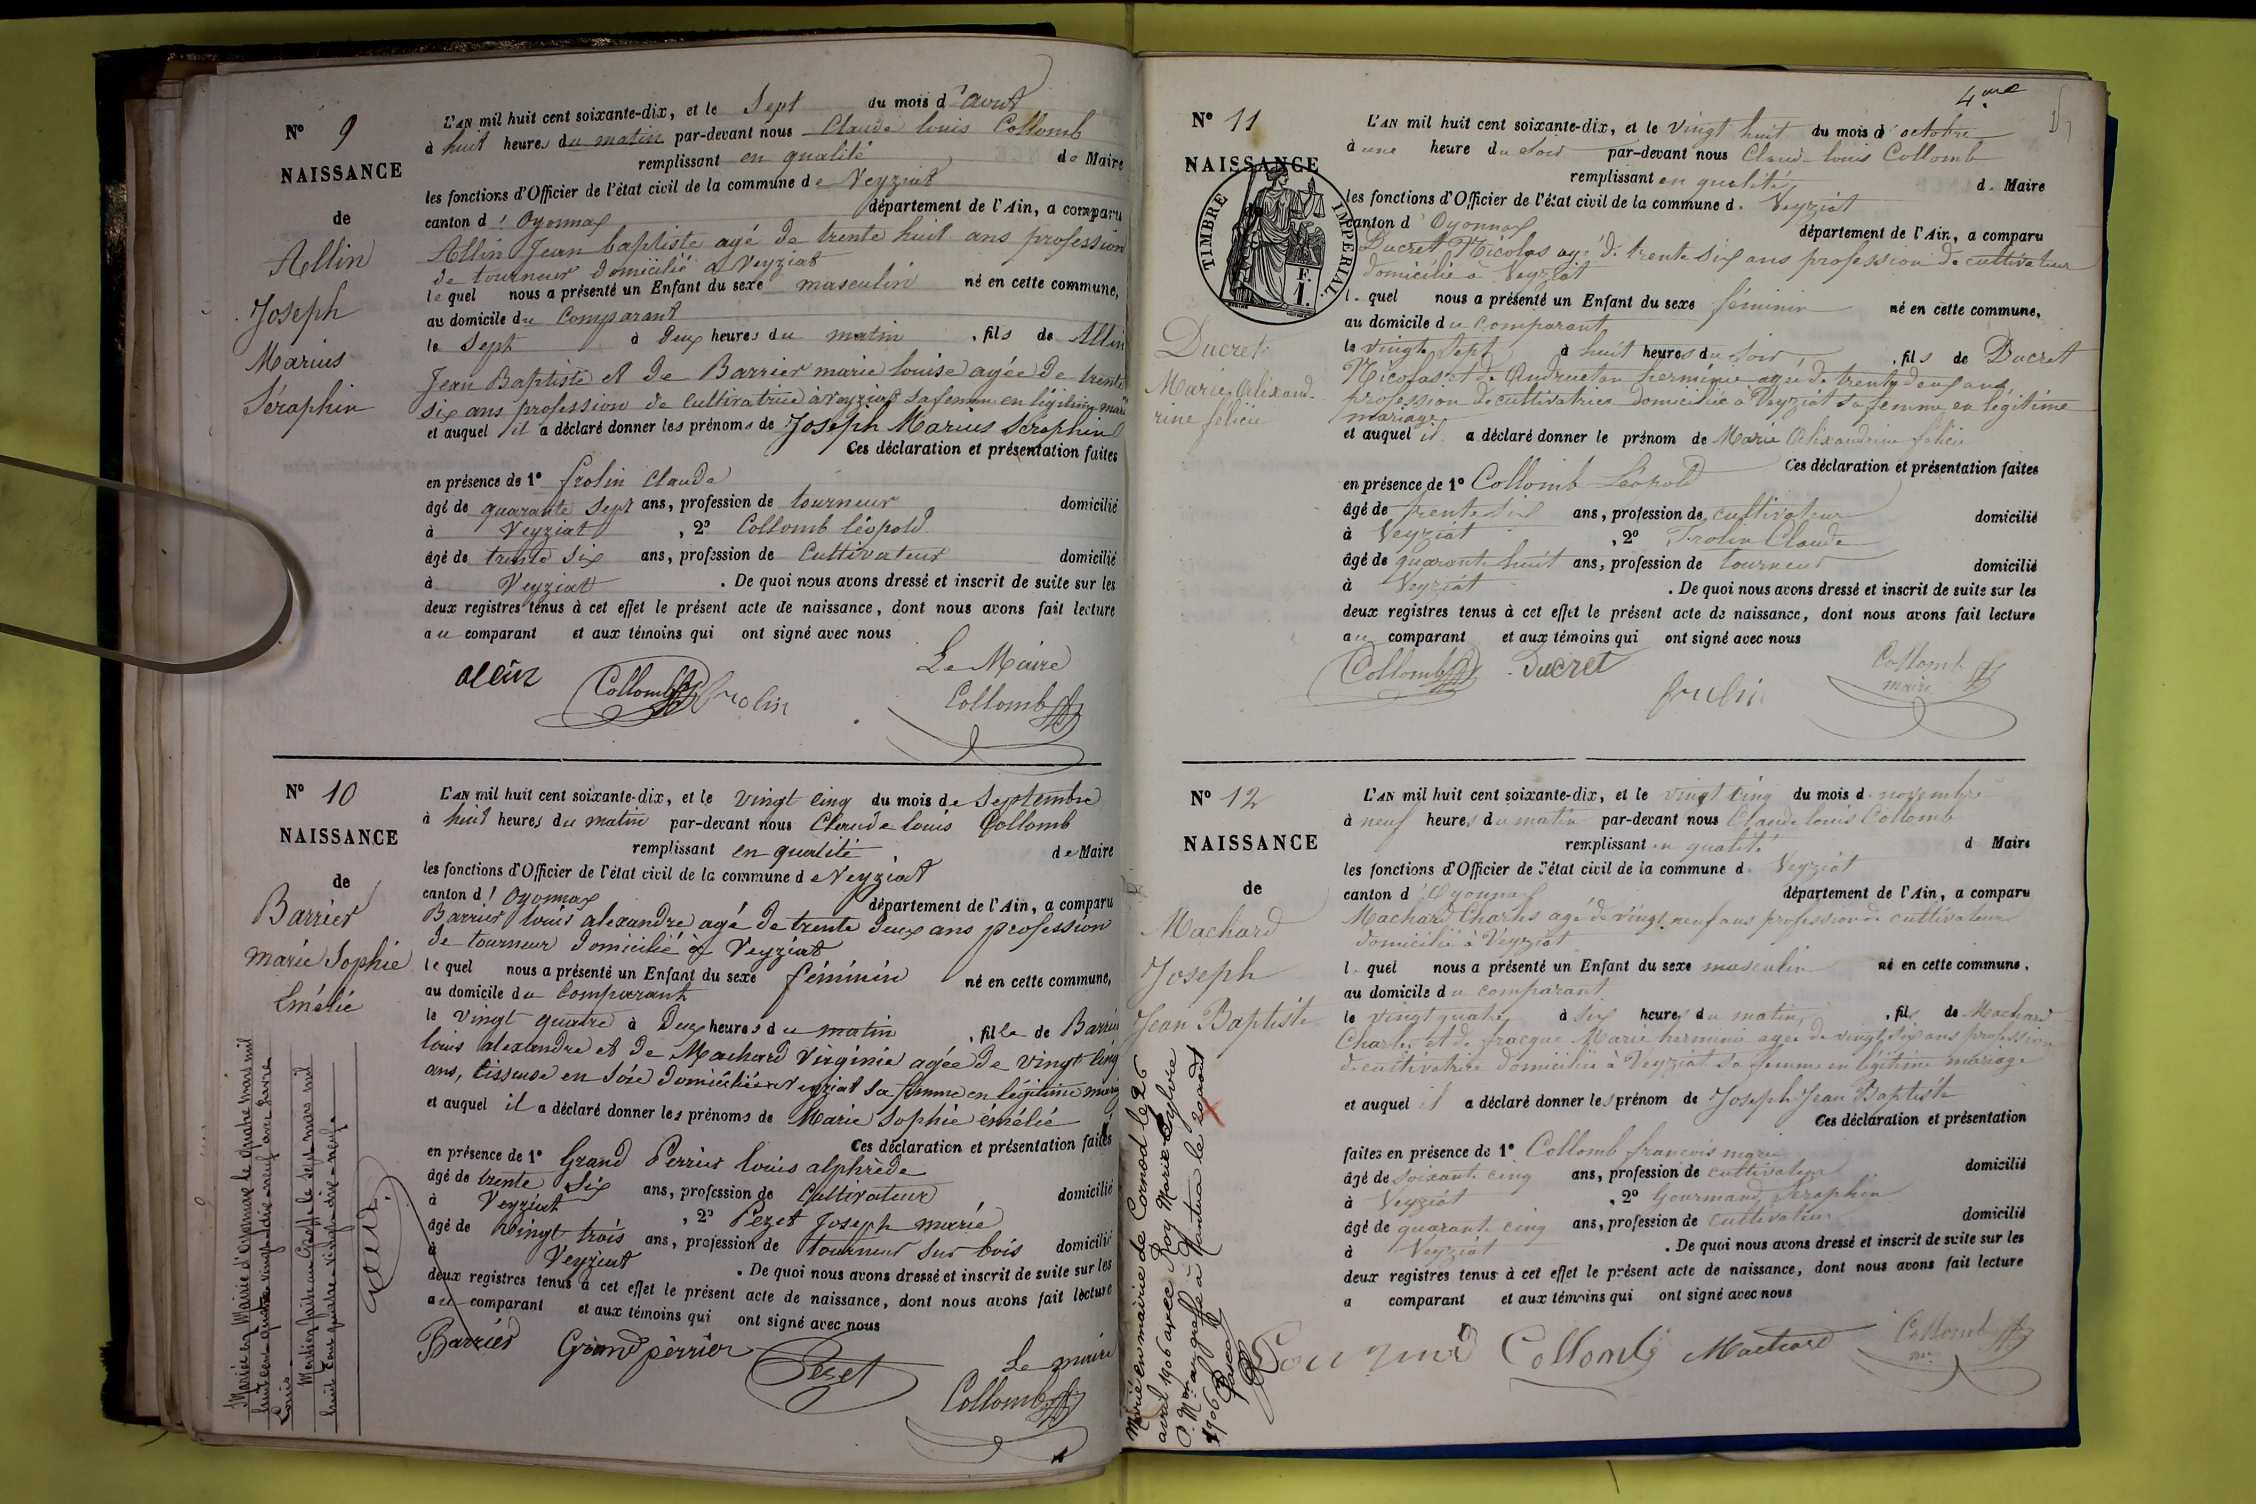 N° 9
NAISSANCE
de
Allin
Joseph
Marius
Séraphin
L'AN mil huit cent soixante-dix, et le Sept du mois d'Avout
à huit heures du matin par-devant nous Claude louis Collomb
remplissant en qualité de Maire
les fonctions d'Officier de l'état civil de la commune de Veyziat
canton d'Oyonnax département de l'Ain, a comparu
Allin Jean baptiste agé de trente huit ans profession
de tourneur domicilié à Veyziat
lequel nous a présenté un Enfant du sexe masculin né en cette commune,
au domicile du Comparant
le Sept à deux heures du matin, fils de Allin
Jean Baptiste et de Barrier marie louise agée de trente
six ans profession de cultivatrice à Veyziat sa femme en légitime mari
et auquel il a déclaré donner les prénoms de Joseph Marius Seraphin
Ces déclaration et présentation faites
en présence de 1° frolin Claude
âgé de quarante sept ans, profession de tourneur domicilié
à Veyziat, 2° Collomb léopold
âgé de trente six ans, profession de Cultivateur domicilié
à Veyziat. De quoi nous avons dressé et inscrit de suite sur les
deux registres tenus à cet effet le présent acte de naissance, dont nous avons fait lecture
au comparant et aux témoins qui ont signé avec nous
Le Maire
Collomb frolin Collomb
N° 10
NAISSANCE
de
Barrier
marie Sophie
Emélie
L'AN mil huit cent soixante-dix, et le vingt cinq du mois de Septembre
à huit heures du matin par-devant nous Claude louis Collomb
remplissant en qualité de Maire
les fonctions d'Officier de l'état civil de la commune de Veyziat
canton d'Oyonnax département de l'Ain, a comparu
Barrier louis alexandre agé de trente deux ans profession
de tourneur domicilié à Veyziat
lequel nous a présenté un Enfant du sexe féminin né en cette commune,
au domicile du Comparant
le vingt quatre à Deux heures du matin, fille de Barrier
louis alexandre et de Machard Virginie agée de vingt cinq
ans, tisseuse en soie domiciliée à Veyziat sa femme en légitime mariag
et auquel il a déclaré donner les prénoms de Marie Sophie émélie
Ces déclaration et présentation faites
en présence de 1° Grand Perrier louis alphrède
âgé de trente six ans, profession de Cultivateur domicilié
à Veyziat, 2° Pezet Joseph marie
âgé de vingt trois ans, profession de tourneur sur bois domicilié
à Veyziat. De quoi nous avons dressé et inscrit de suite sur les
deux registres tenus à cet effet le présent acte de naissance, dont nous avons fait lecture
au comparant et aux témoins qui ont signé avec nous
Barrier Grand perrier Pezet Le maire
Collomb
Mariée en Mairie d'Oyonnax le quatre mars mil
huit cent quatre vingt dix-neuf avec
Louis
Mention faite au Greffe le sept mars mil
huit cent quatre vingt-dix-neuf
4me
N° 11
NAISSANCE
TIMBRE IMPÉRIAL
F.
1.
Ducret
Marie Alixand-
rine félicie
L'AN mil huit cent soixante-dix, et le vingt huit du mois d'octobre
à une heure du soir par-devant nous Claude louis Collomb
remplissant en qualité d. Maire
les fonctions d'Officier de l'état civil de la commune d. Veyziat
canton d'Oyonnax département de l'Ain, a comparu
Ducret Nicolas agé de trente six ans profession de cultivateur
domicilié à Veyziat
l. quel nous a présenté un Enfant du sexe féminin né en cette commune,
au domicile du comparant
le vingt sept à huit heures du soir, fils de Ducret
Nicolas et de herminie agée de trente deux ans
profession de cultivatrice domiciliée à Veyziat sa femme en légitime
mariage
et auquel il a déclaré donner le prénom de Marie Alixandrine félicie
Ces déclaration et présentation faites
en présence de 1° Collomb Léopold
âgé de trente six ans, profession de cultivateur domicilié
à Veyziat, 2° Frolin Claude
âgé de quarante huit ans, profession de tourneur domicilié
à Veyziat. De quoi nous avons dressé et inscrit de suite sur les
deux registres tenus à cet effet le présent acte de naissance, dont nous avons fait lecture
au comparant et aux témoins qui ont signé avec nous
Collomb Ducret frolin Collomb
maire
N° 12
NAISSANCE
de
Machard
Joseph
Jean Baptiste
L'AN mil huit cent soixante-dix, et le vingt cinq du mois d. novembre
à neuf heures du matin par-devant nous Claude louis Collomb
remplissant en qualité d Maire
les fonctions d'Officier de l'état civil de la commune d. Veyziat
canton d'Oyonnax département de l'Ain, a comparu
Machard Charles agé de vingt neuf ans profession de cultivateur
domicilié à Veyziat
l. quel nous a présenté un Enfant du sexe masculin né en cette commune,
au domicile du comparant
le vingt quatre à six heures du matin, fils de Machard
Charles et de Marie herminie agée de vingt six ans profession
de cultivatrice domiciliée à Veyziat sa femme en légitime mariage
et auquel il a déclaré donner les prénom de Joseph Jean Baptiste
Ces déclaration et présentation
faites en présence de 1° Collomb francois marie
âgé de soixante cinq ans, profession de cultivateur domicilié
à Veyziat, 2° Gourmand Séraphin
âgé de quarante cinq ans, profession de cultivateur domicilié
à Veyziat. De quoi nous avons dressé et inscrit de suite sur les
deux registres tenus à cet effet le présent acte de naissance, dont nous avons fait lecture
a comparant et aux témoins qui ont signé avec nous
Gourmand Collomb Machard Collomb
Marié en mairie de Cornod le 26
avril 1906 avec Roy Marie
au greffe à Nantua le 20 août
1906